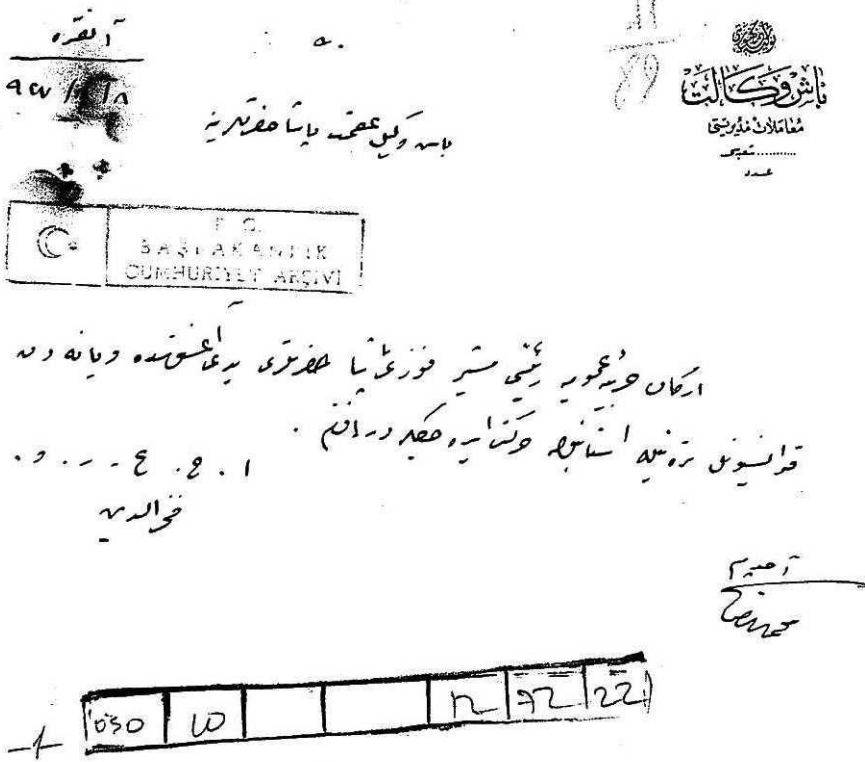 باش وكالت
معاملات مديريتى
شعبه‌سى
عدد
آنقره
باش وكيل عصمت پاشا حضرتلرينه
T. C.
BAŞBAKANLIK
CUMHURİYET ARŞİVİ
اركان حربيه عموميه رئيسى مشير فوزى پاشا حضرتلرى يدى اغستوسده ويانه دن
قوانسيونل تره‌نيله استانبوله حركت ايده جكلردر افندم .
ا . ح . ع . ر . و .
فخرالدين
030 10 12 72 22